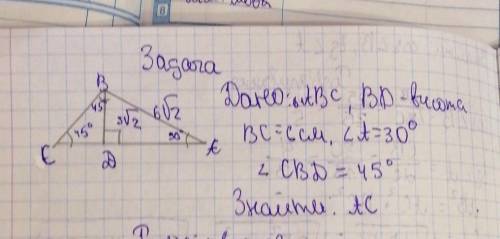 Задача
B
45°
3√2
6√2
45°
30°
C
D
A
Дано: △ABC, BD - висота
BC = 6 см, ∠A = 30°
∠CBD = 45°
Знайти. AC